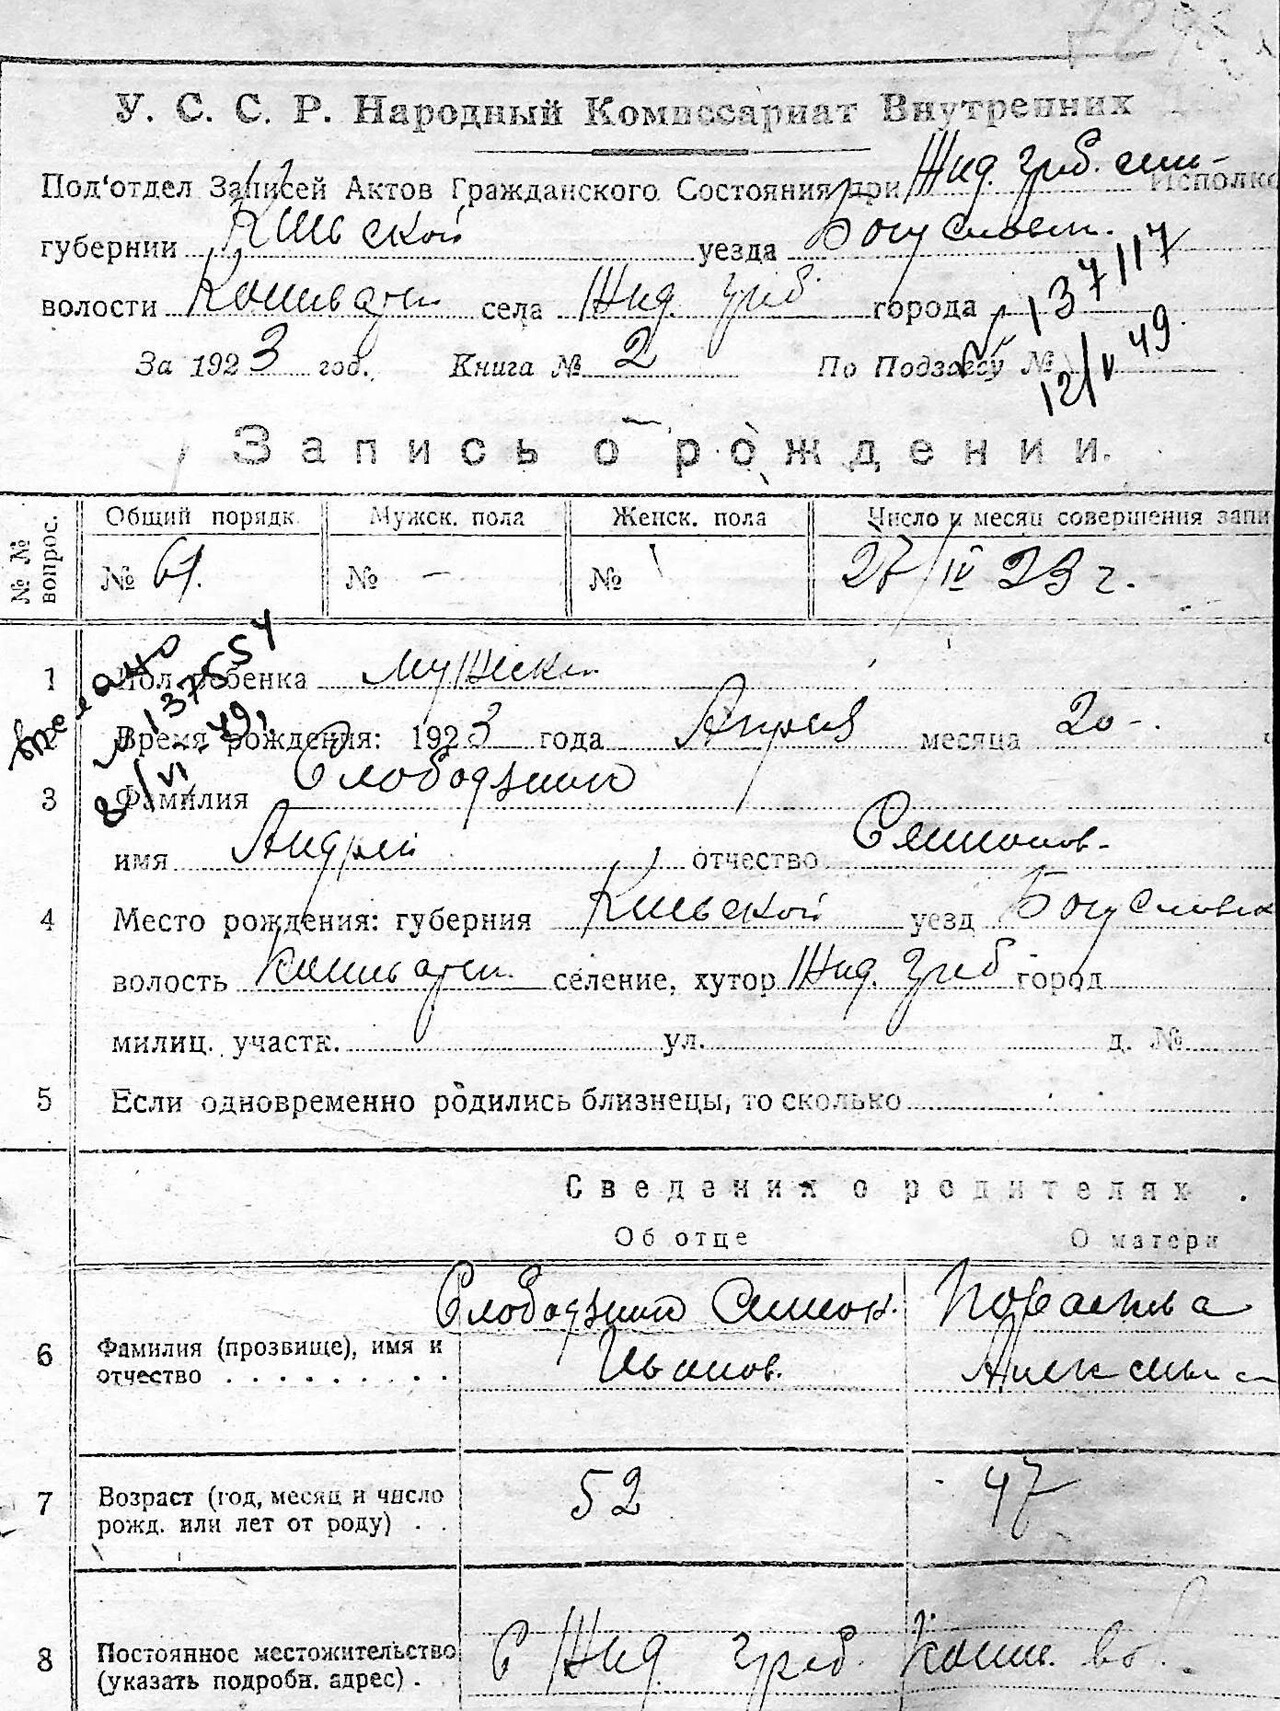 У. С. С. Р. Народный Комиссариат Внутренних
Под'отдел Записей Актов Гражданского Состояния при Жид. греб. Исполко
губернии Киевской уезда Богуславск.
волости села Жид. греб. города
За 1923 год. Книга № 2 По Подзагсу №
№ 137117
12/V 49.
Запись о рождении.
№ № вопрос. Общий порядк. Мужск. пола Женск. пола Число и месяц совершения запи
№ 61. № - № 27/IV 23 г.
1 Пол ребенка мужск
137554
Время рождения: 1923 года Апреля месяца 20 -.
3 Фамилия Слободзиан
имя Андрей отчество Семионов-
4 Место рождения: губерния Киевской уезд Богуславск
волость селение, хутор Жид. греб город
милиц. участк. ул. д. №
5 Если одновременно родились близнецы, то сколько
Сведения о родителях.
Об отце О матери
Слободзиан Семион. Параскева
6 Фамилия (прозвище), имя и отчество Иванов. Алексеевна
7 Возраст (год, месяц и число рожд. или лет от роду) 52 47
8 Постоянное местожительство (указать подробн. адрес) С Жид. греб.